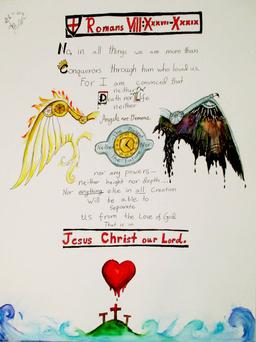 Romans VIII:XXXVII-XXXIX
No, in all things we are more than
Conquerors through him who loved us.
For I am convinced that
neither
Death nor Life
neither
Angels nor Demons
Neither Nor
nor any powers—
neither height nor depth...
Nor anything else in all Creation
Will be able to
Separate
US from the Love of God
That is in
Jesus Christ our Lord.